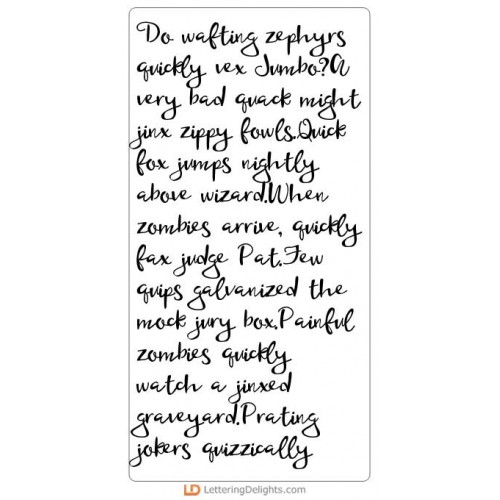 Do wafting zephyrs
quickly vex Jumbo?A
very bad quack might
jinx zippy fowls.Quick
fox jumps nightly
above wizard.When
zombies arrive, quickly
fax judge Pat.Few
quips galvanized the
mock jury box.Painful
zombies quickly
watch a jinxed
graveyard.Prating
jokers quizzically
LD LetteringDelights.com